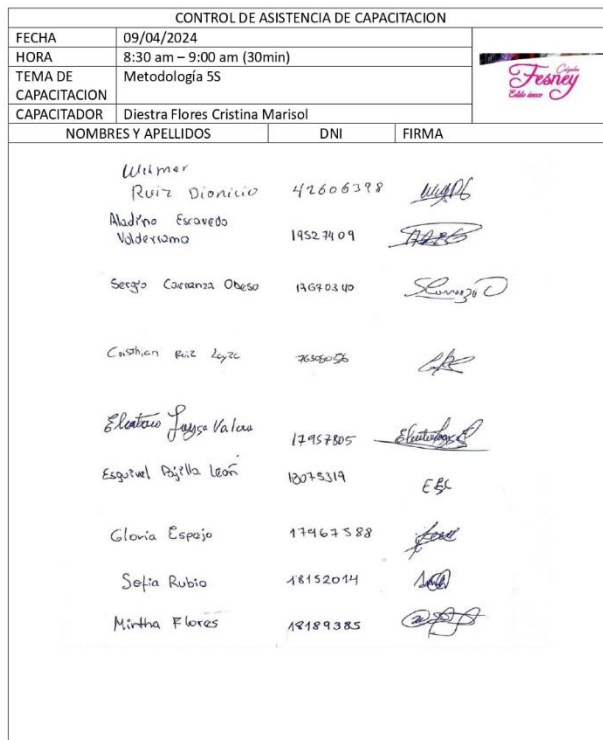 CONTROL DE ASISTENCIA DE CAPACITACION
FECHA 09/04/2024
HORA 8:30 am – 9:00 am (30min)
TEMA DE CAPACITACION Metodología 5S
CAPACITADOR Diestra Flores Cristina Marisol
Calzados
Fesney
Estilo único
NOMBRES Y APELLIDOS DNI FIRMA
Wilmer
Ruiz Dionicio 42606398
Aladino Escavedo
Valderrama 19527409
Sergio Carranza Obeso
Ruiz
Valera 17957805
León 18075319
Gloria Espejo 17967588
Sofia Rubio 18152014
Mirtha Flores 18189385